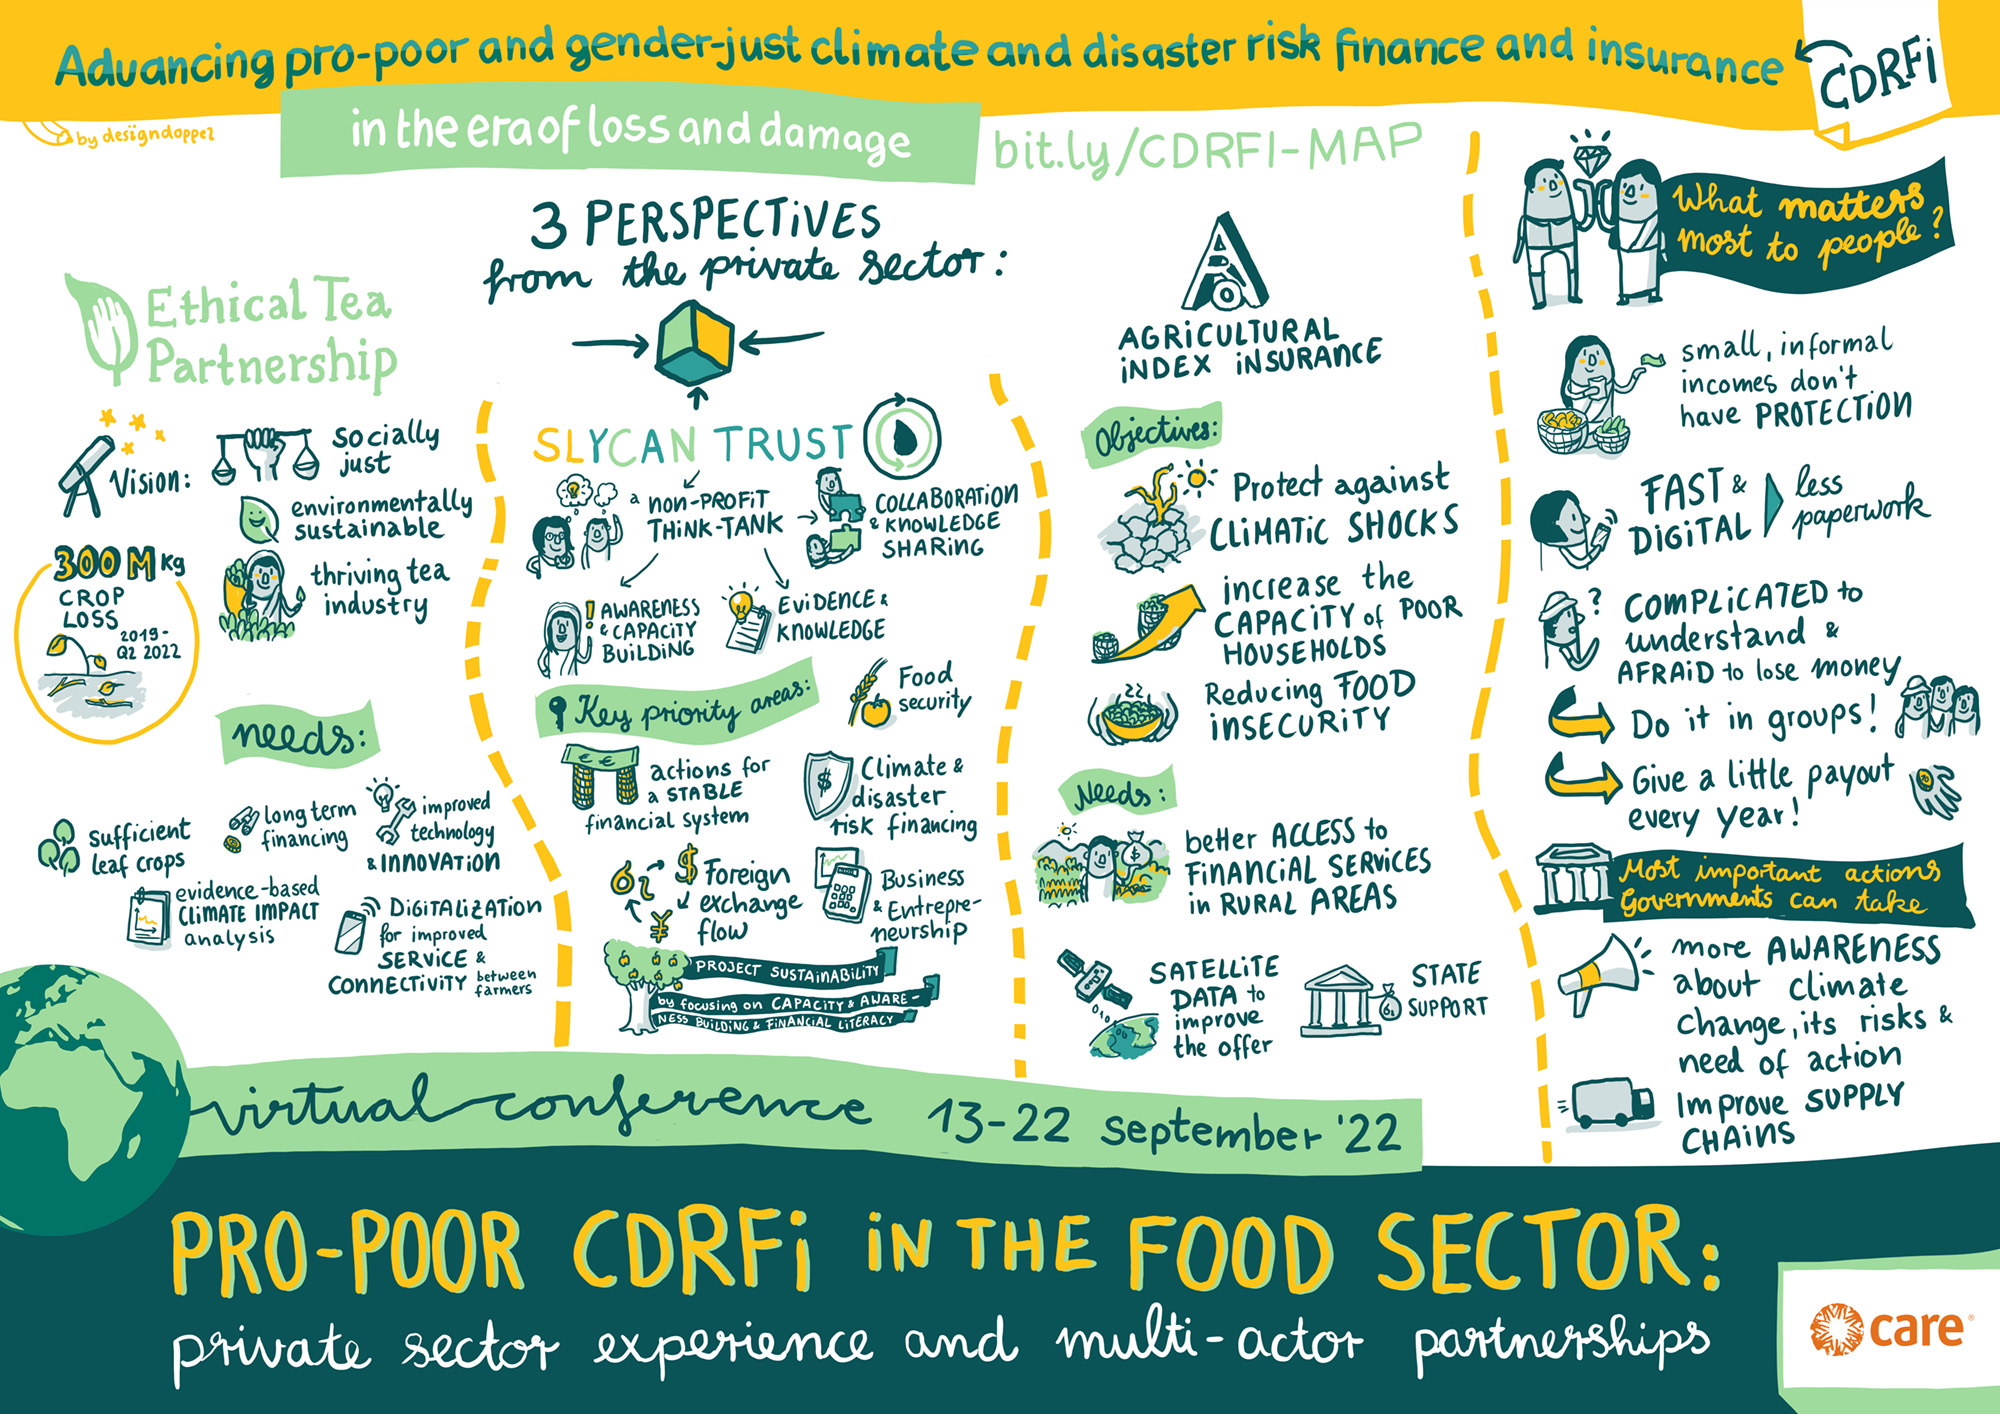 Advancing pro-poor and gender-just climate and disaster risk finance and insurance
CDRFi
in the era of loss and damage
by designdoppel
bit.ly/CDRFI-MAP
3 PERSPECTiVES
from the private sector:
Ethical Tea
Partnership
Vision:
socially
just
environmentally
sustainable
thriving tea
industry
300 M kg
CROP
LOSS
2019-
Q2 2022
needs:
sufficient
leaf crops
long term
financing
improved
technology
& iNNOVATiON
evidence-based
CLiMATE iMPACT
analysis
DiGiTALiZATiON
for improved
SERViCE &
CONNECTiViTY between
farmers
SLYCAN TRUST
a NON-PROFiT
THiNK-TANK
COLLABORATiON
& KNOWLEDGE
SHARiNG
AWARENESS
& CAPACiTY
BUiLDiNG
EViDENCE &
KNOWLEDGE
Key priority areas:
Food
security
actions for
a STABLE
financial system
$
Climate &
disaster
risk financing
$
¥
Foreign
exchange
flow
Business
& Entrepre-
neurship
PROJECT SUSTAiNABiLiTY
by focusing on CAPACiTY & AWARE-
NESS BUiLDiNG & FiNANCiAL LiTERACY
AGRiCULTURAL
iNDEX iNSURANCE
Objectives:
Protect against
CLiMATiC SHOCKS
increase the
CAPACiTY of POOR
HOUSEHOLDS
Reducing FOOD
iNSECURiTY
Needs:
better ACCESS to
FiNANCiAL SERViCES
in RURAL AREAS
SATELLiTE
DATA to
improve
the offer
STATE
SUPPORT
What matters
most to people?
small, informal
incomes don't
have PROTECTiON
FAST &
DiGiTAL
less
paperwork
?
COMPLiCATED to
understand &
AFRAiD to lose money
Do it in groups!
Give a little payout
every year!
Most important actions
Governments can take
more AWARENESS
about climate
change, its risks &
need of action
Improve SUPPLY
CHAiNS
virtual conference 13-22 september '22
PRO-POOR CDRFi iN THE FOOD SECTOR:
private sector experience and multi-actor partnerships
care®